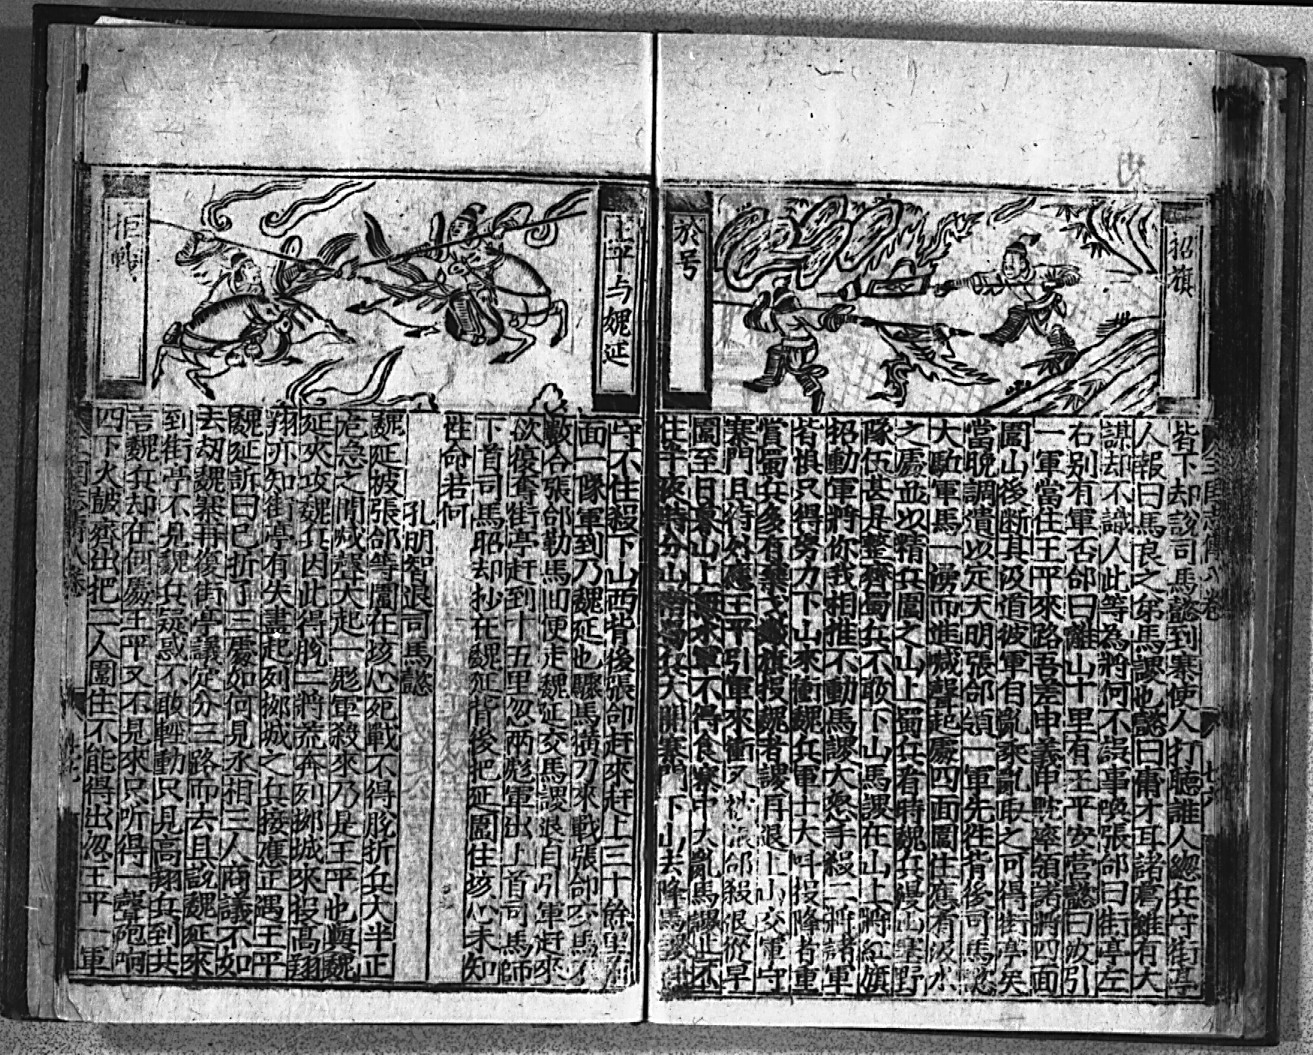 招旗
於号
皆下却說司馬懿到寨使人打聽誰人總兵守街亭
人報曰馬良之弟馬謖也懿曰庸才耳諸葛雖有大
謀却不識人此等為將何不誤事喚張郃曰街亭左
右別有軍否郃曰離山十里有王平安营懿曰汝引
一軍當住王平來路吾差申義申躭率領諸將四面
圍山後断其汲道彼軍自亂乘亂取之可得街亭矣
當晚調遣以定天明張郃領一軍先往背後司馬懿
大馳軍馬一湧而進喊聲起處四面圍住應有汲水
之處並以精兵圍之山上蜀兵看時魏兵漫山塞野
隊伍甚是整齊蜀兵不敢下山馬謖在山上將紅旗
招動軍將你我相推不動馬謖大怒手殺二將諸軍
皆惧只得努力下山來衝魏兵軍士大叫投降者重
賞蜀兵多有棄戈旗投魏者謖再退上山交軍守
寨門且待外應王平引軍來衝又張郃殺退從早
圍至日暮山上無水軍不得食寨中大亂馬謖止不
住半夜時分山諸葛兵大開寨門下山去降馬謖
王平与魏延
拒戰
守不住殺下山西背後張郃赶來赶上三十餘里
面一隊軍到乃魏延也驟馬橫刀來戰張郃
數合張郃勒馬囬便走魏延交馬謖退自引軍赶來
欲復奪街亭赶到十五里忽兩彪軍出上首司馬師
下首司馬昭却抄在魏延背後把延圍住垓心未知
性命若何
孔明智退司馬懿
魏延被張郃等圍在垓心死戰不得脫折兵大半正
危急之間喊聲大起一彪軍殺來乃是王平也與魏
延夾攻魏兵因此得脫二將荒奔列栁城來投高翔
翔亦知街亭有失盡起列栁城之兵接應正遇王平
魏延訴曰已折了三處如何見水相三人商議不如
去刼魏寨再復街亭議定分三路而去且說魏延來
到街亭不見魏兵疑惑不敢輕動只見高翔兵到共
言魏兵却在何處王平又不見來只听得一聲砲响
四下火皷齊出把二人圍住不能得出忽王平一軍